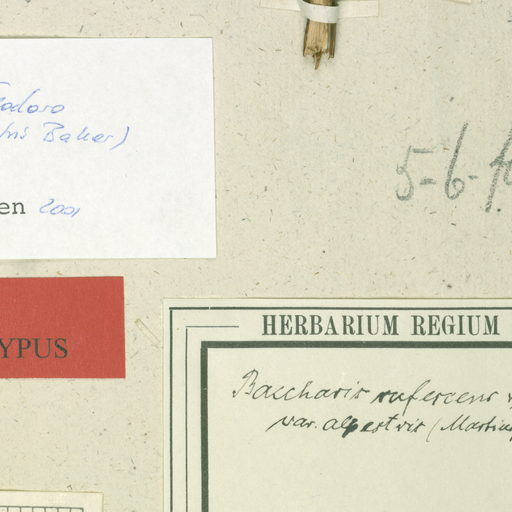 Baker)
en 2001
5-6-
YPUS
HERBARIUM REGIUM
Baccharis rufescens
var. alpestris (Martius